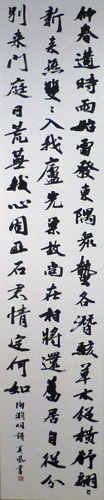 仲春遘時雨始雷發東隅衆蟄各潛駭草木從橫舒翩翩
新来燕雙雙入我廬先巢故尚在相將還舊居自從分
別来門庭日荒蕪我心固匪石君情定何如
陶淵明詩 書